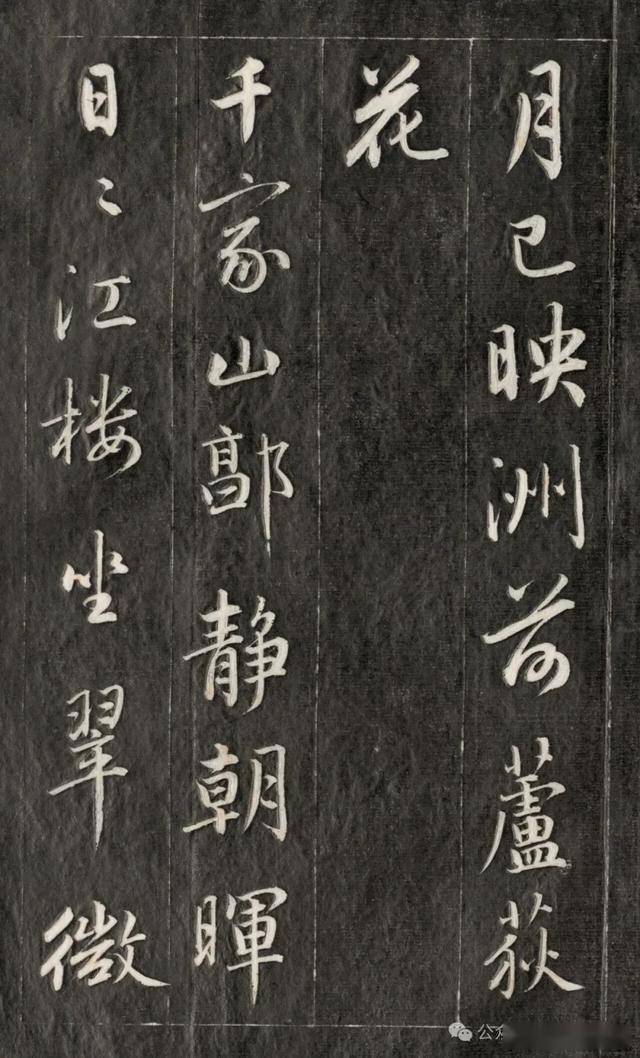 月已映洲前蘆荻
花
千家山郭静朝暉
日〻江楼坐翠微
公